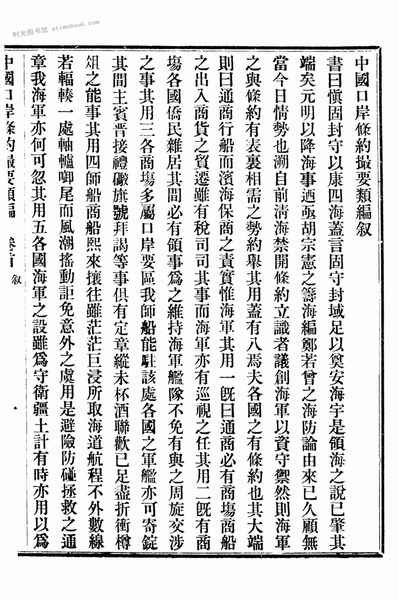 时光图书馆 etimebook.com
中國口岸條約撮要類編叙
書曰愼固封守以康四海蓋言固守封域足以奠安海宇是領海之說已肇其
端矣元明以降海事廼亟胡宗憲之籌海編鄭若曾之海防論由來已久顧無
當今日情勢也溯自前淸海禁開條約立識者議創海軍以資守禦然則海軍
之與條約有表裏相需之勢約舉其用蓋有八焉夫各國之有條約也其大端
則曰通商行船而濱海保商之責實惟海軍其用一旣曰通商必有商塲商船
之出入商貨之貿遷雖有稅司司其事而海軍亦有巡視之任其用二旣有商
塲各國僑民雜居其間必有領事爲之維持海軍艦隊不免有與之周旋交涉
之事其用三各商塲多屬口岸要區我師船能駐該處各國之軍艦亦可寄錠
其間主賓晋接禮礮旗號拜謁等事俱有定章縱未杯酒聯歡已足盡折衝樽
俎之能事其用四師船商船熙來攘往雖茫茫巨浸所取海道航程不外數線
若輻輳一處舳艫啣尾而風潮搖動詎免意外之處用是避險防碰拯救之通
章我海軍亦何可忽其用五各國海軍之設雖爲守衛疆土計有時亦用以爲
中國口岸條約撮要類編 卷首 叙